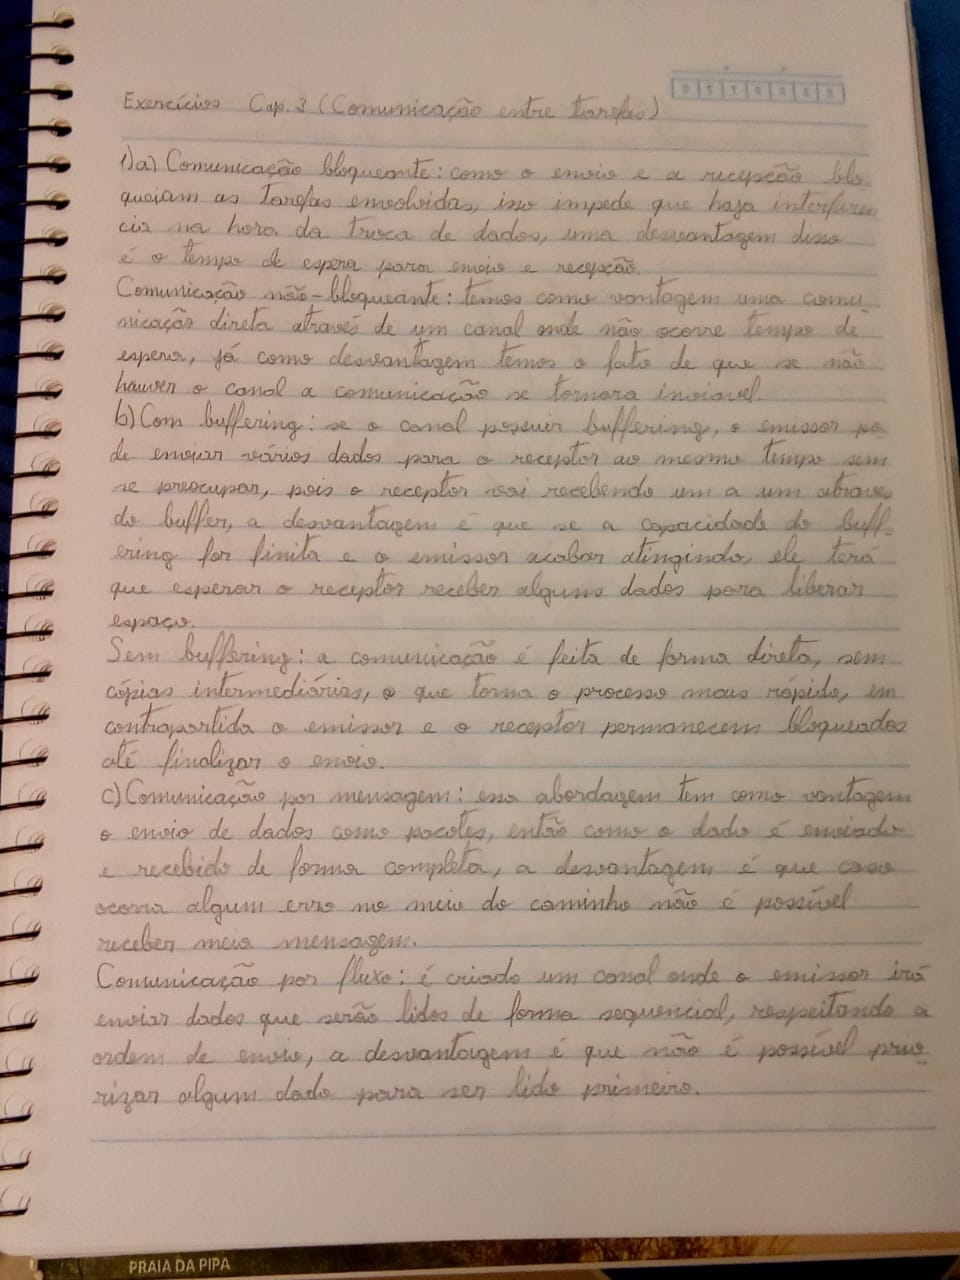 D S T Q Q S S
Exercícios Cap. 3 (Comunicação entre tarefas)
1)a) Comunicação bloqueante: como o envio e a recepção blo
queiam as tarefas envolvidas, isso impede que haja interferên
cia na hora da troca de dados, uma desvantagem disso
é o tempo de espera para envio e recepção.
Comunicação não-bloqueante: temos como vantagem uma comu
nicação direta através de um canal onde não ocorre tempo de
espera, já como desvantagem temos o fato de que se não
houver o canal a comunicação se tornara inviavel.
b) Com buffering: se o canal possuir buffering, o emissor po
de enviar vários dados para o receptor ao mesmo tempo sem
se preocupar, pois o receptor vai recebendo um a um atraves
do buffer, a desvantagem é que se a capacidade do buff-
ering for finita e o emissor acabar atingindo, ele terá
que esperar o receptor receber alguns dados para liberar
espaço.
Sem buffering: a comunicação é feita de forma direta, sem
cópias intermediárias, o que torna o processo mais rápido, em
contrapartida o emissor e o receptor permanecem bloqueados
até finalizar o envio.
c) Comunicação por mensagem: essa abordagem tem como vantagem
o envio de dados como pacotes, então como o dado é enviado
e recebido de forma completa, a desvantagem é que caso
ocorra algum erro no meio do caminho não é possível
receber meia mensagem.
Comunicação por fluxo: é criado um canal onde o emissor irá
enviar dados que serão lidos de forma sequencial, respeitando a
ordem de envio, a desvantagem é que não é possível prio
rizar algum dado para ser lido primeiro.
PRAIA DA PIPA